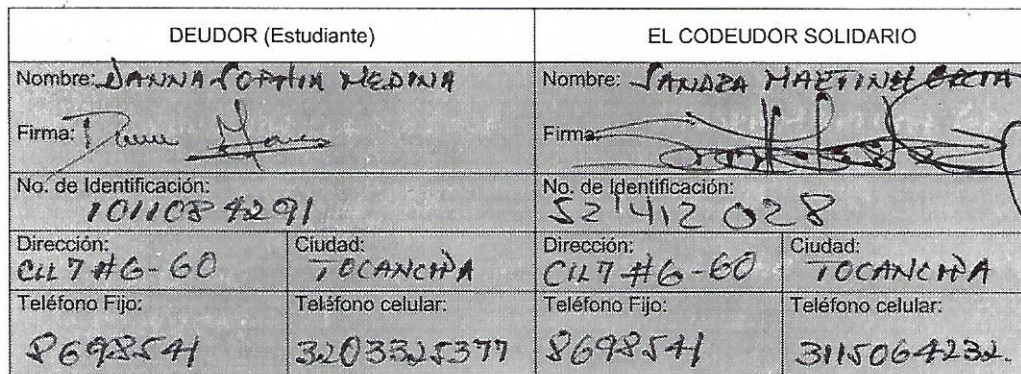 DEUDOR (Estudiante)
EL CODEUDOR SOLIDARIO
Nombre: DANNA SOFHIA MEDINA
Nombre: SANDRA MARTINEZ
Firma:
Firma:
No. de Identificación:
1011084291
No. de Identificación:
52'412 028
Dirección:
CLL 7 #6-60
Ciudad:
TOCANCIPA
Dirección:
CLL 7 #6-60
Ciudad:
TOCANCIPA
Teléfono Fijo:
8698541
Teléfono celular:
3203325377
Teléfono Fijo:
8698541
Teléfono celular:
3115064232.